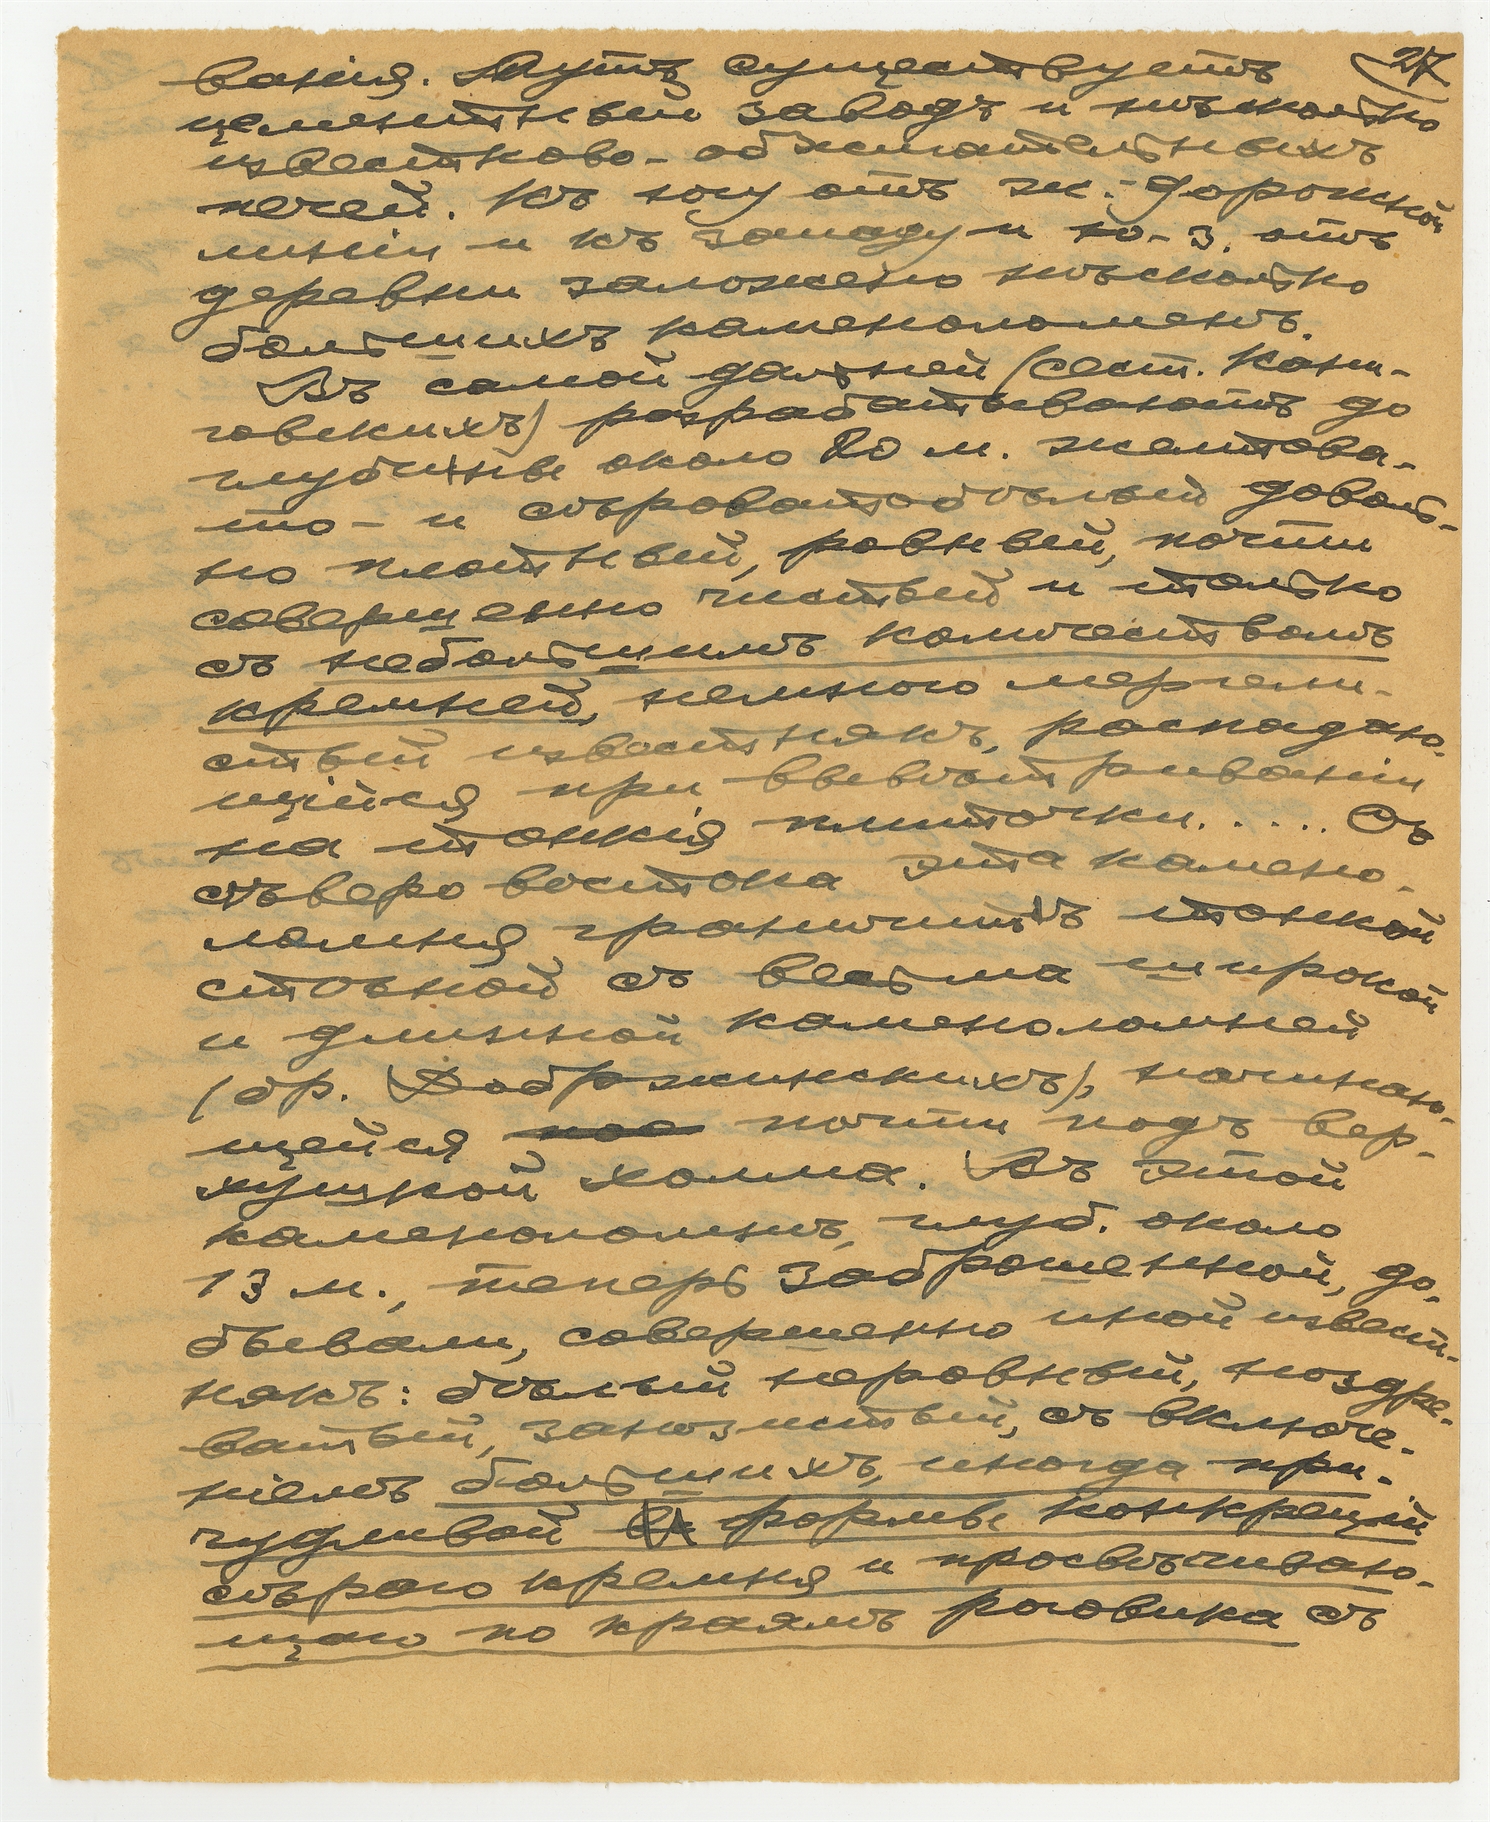 27
ванія. Тутъ существуетъ
цементный заводъ и нѣсколько
известково-обжигательныхъ
печей. Къ югу отъ ж.-дорожной
линіи и къ западу и ю-з. отъ
деревни заложено нѣсколько
большихъ каменоломенъ.
Въ самой дальней (сест.
) разрабатываютъ до
глубины около 20 м. желтова-
то- и сѣроватобѣлый доволь-
но плотный, ровный, почти
совершенно чистый и только
съ небольшимъ количествомъ
кремней, немного мергели-
стый известнякъ, распадаю-
щійся при вывѣтриваніи
на тонкія плиточки..... Съ
сѣверо востока эта камено-
ломня граничитъ тонкой
стѣной съ весьма широкой
и длинной каменоломней
(бр. Добржинскихъ), начинаю-
щейся почти подъ вер-
хушкой холма. Въ этой
каменоломнѣ, глуб. около
13 м., теперь заброшенной, до-
бывали, совершенно иной извест-
някъ: бѣлый неровный, ноздре-
ватый, занозистый, съ включе-
ніемъ большихъ, иногда при-
чудливой формы конкрецій
сѣраго кремня и просвѣчиваю-
щаго по краямъ роговика съ